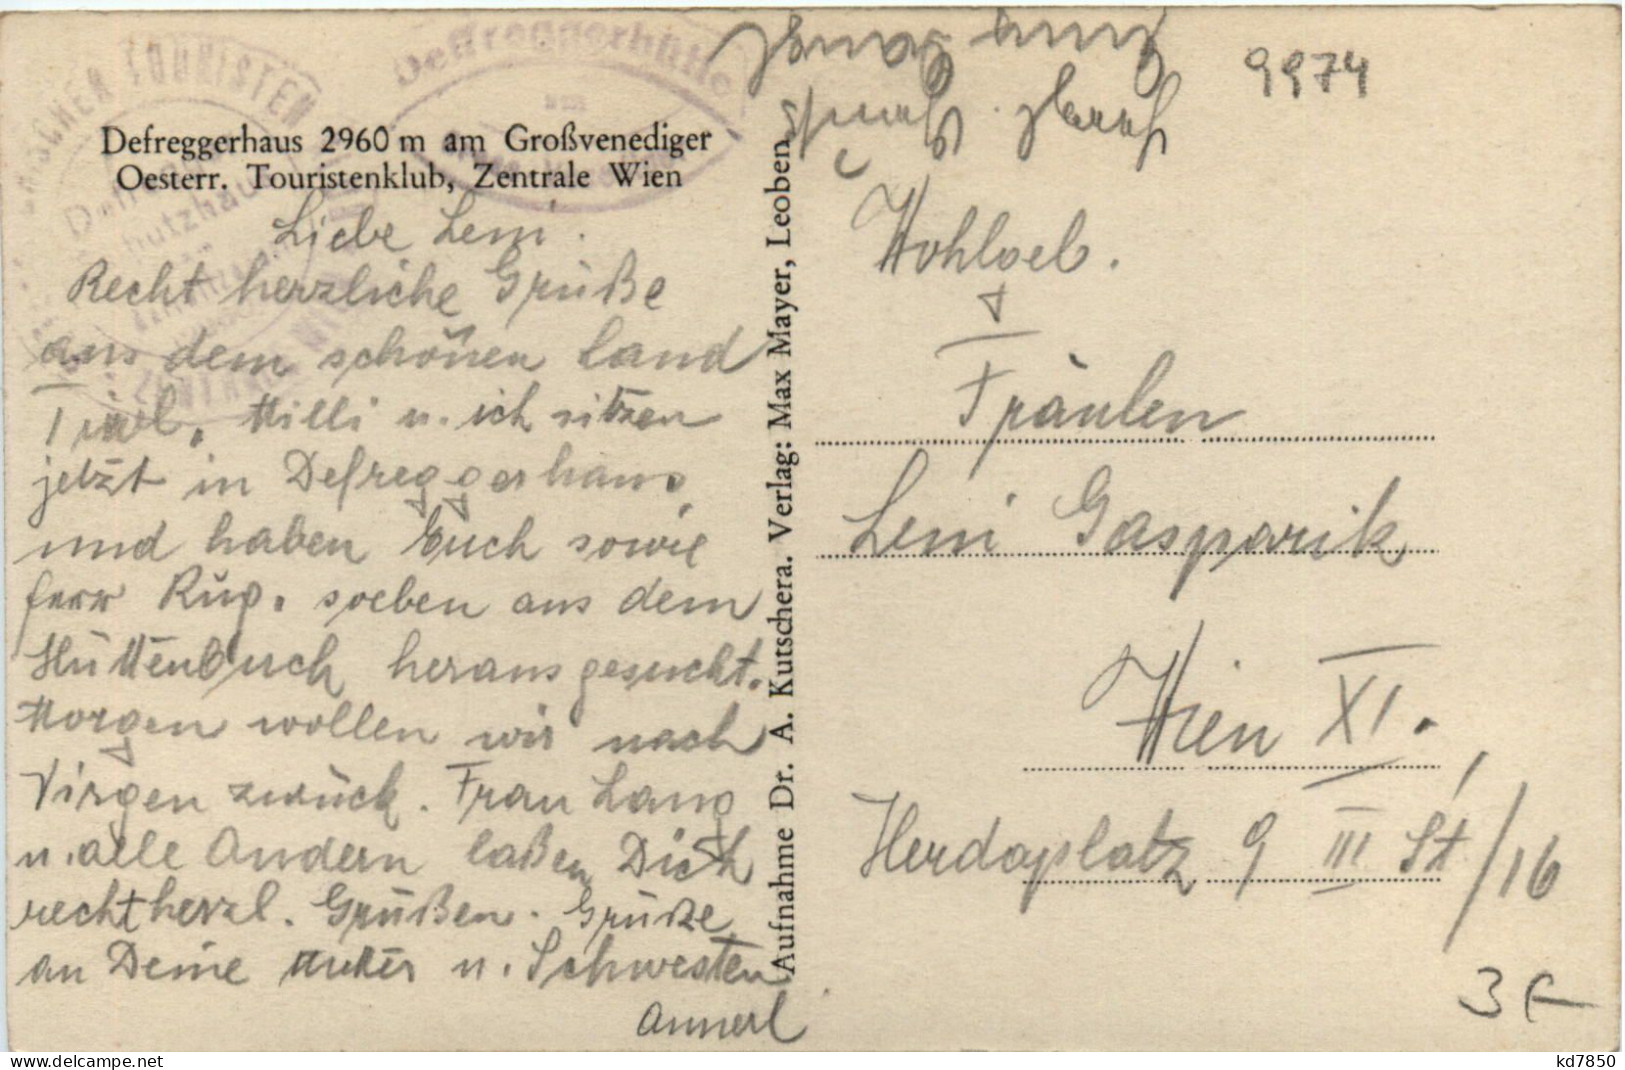 Defreggerhütte
TOURISTEN
9974
Defreggerhaus 2960 m am Großvenediger
Oesterr. Touristenklub, Zentrale Wien
Liebe Leni.
Recht herzliche Grüße
aus dem schönen Land
Tirol. Milli u. ich sitzen
jetzt in Defreggerhaus
und haben Euch sowie
Herr Rup. soeben aus dem
Hüttenbuch herausgesucht.
Morgen wollen wir nach
Virgen zurück. Frau Lang
u. alle Andern laßen Dich
recht herzl. Grüßen. Grüße
an Deine Mutter u. Schwestern
Annerl
Aufnahme Dr. A. Kutschera. Verlag: Max Mayer, Leoben.
Herzl.
Frau Lang
Wohlgeb.
Fräulen
Leni Gasparik
Wien XI.
Herdaplatz 9 III St/16
3 f
kd7850